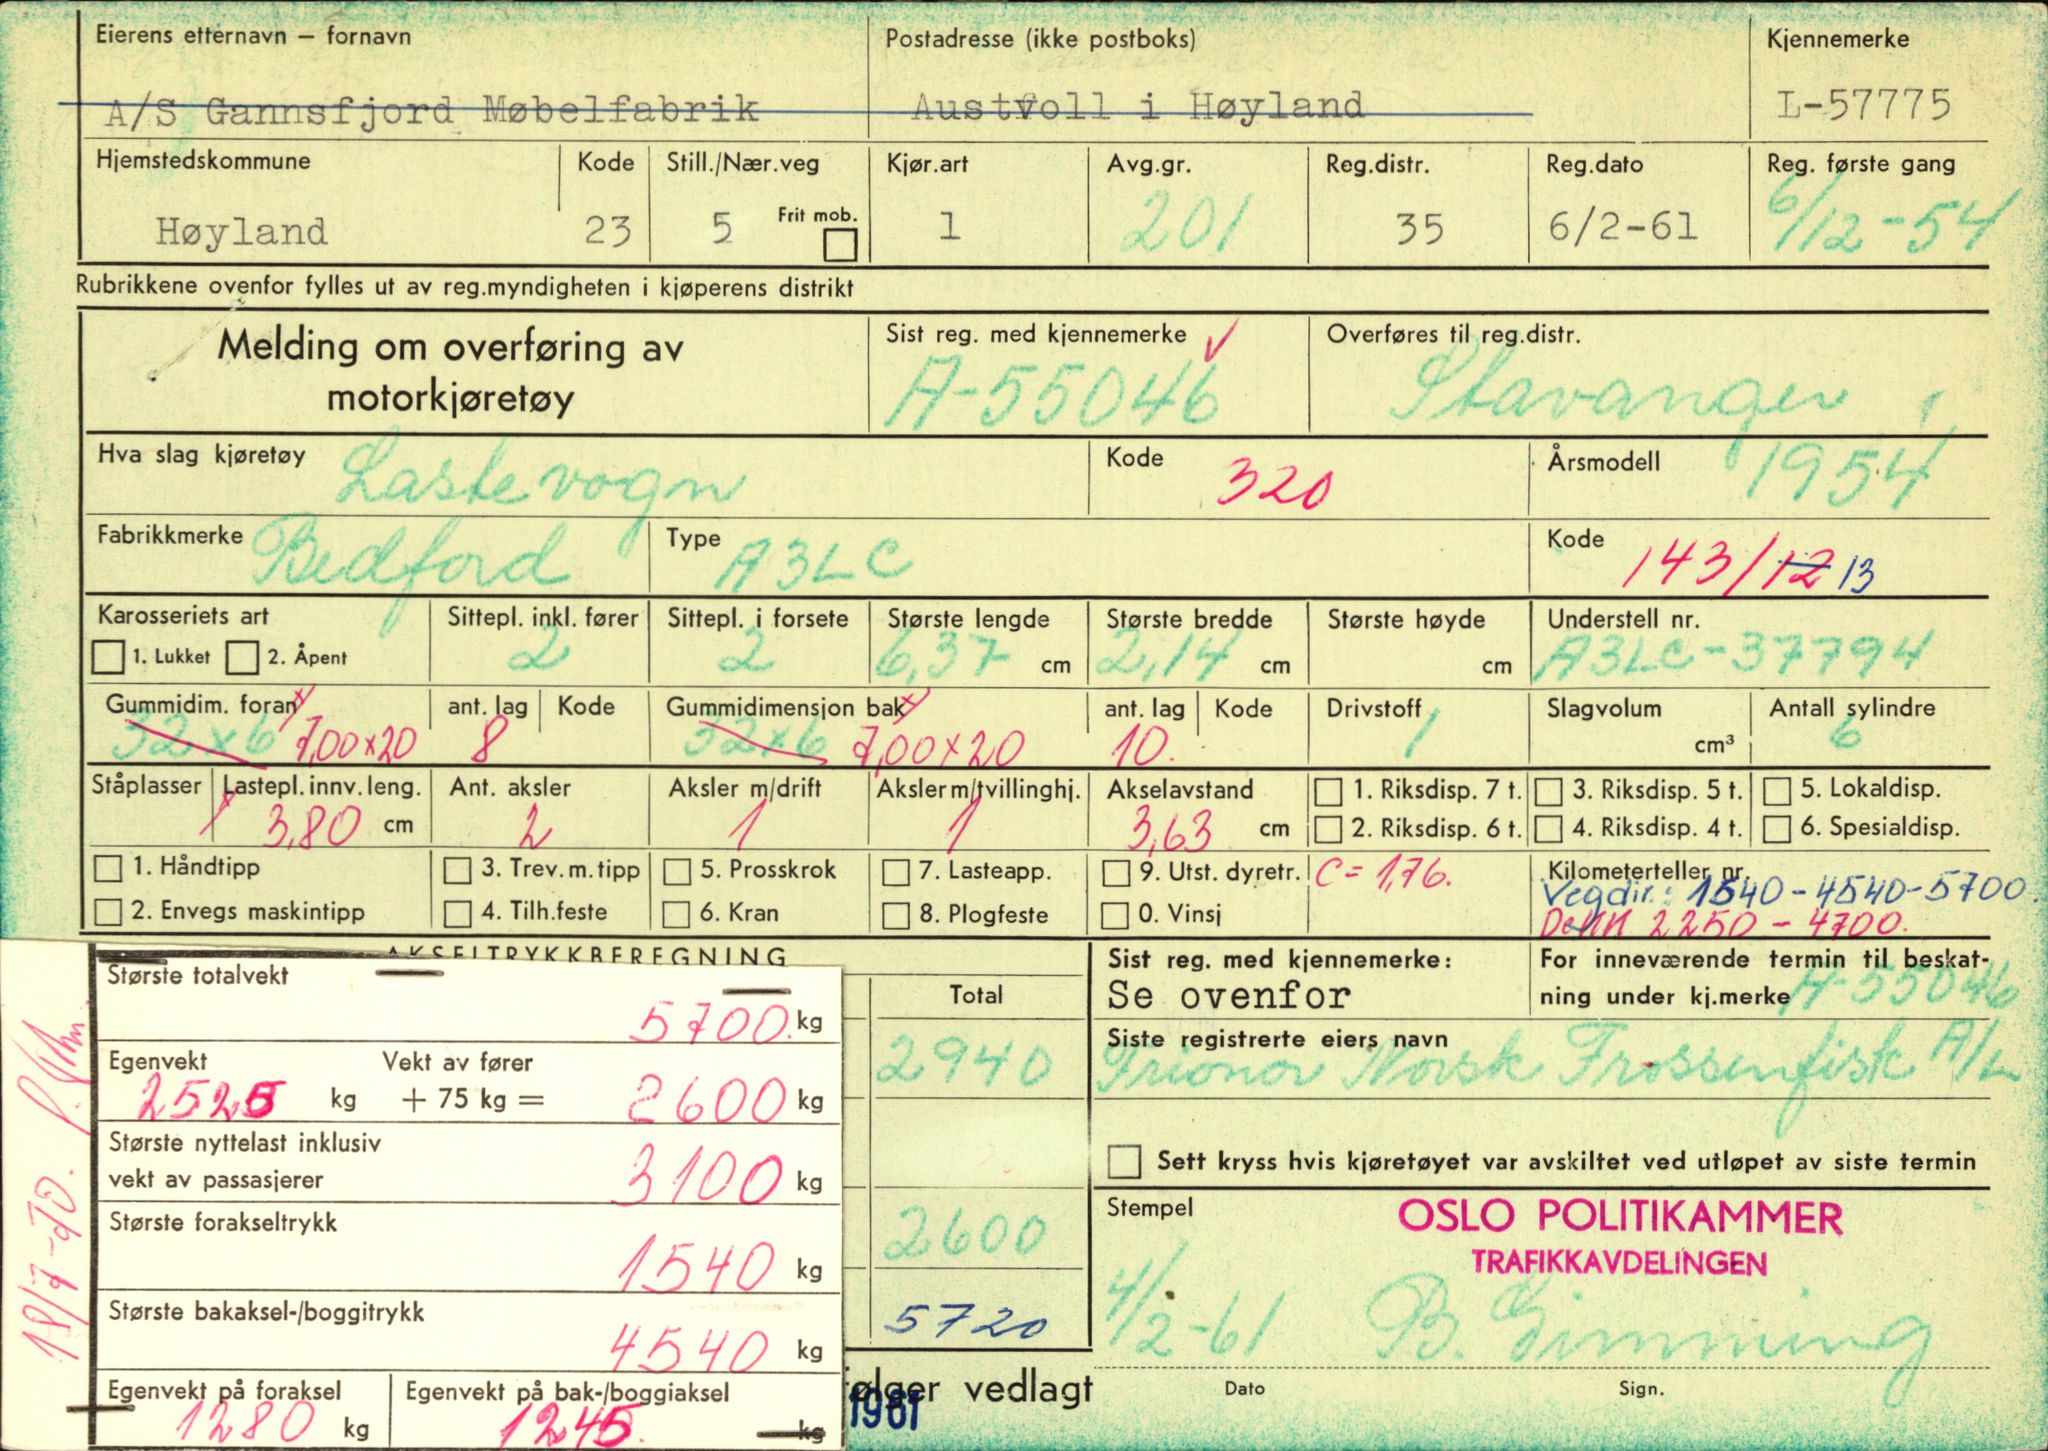 Eierens etternavn – fornavn
Postadresse (ikke postboks)
Kjennemerke
A/S Gannsfjord Møbelfabrik
Austvoll i Høyland
L-57775
Hjemstedskommune
Kode
Still./Nær.veg
Kjør.art
Avg.gr.
Reg.distr.
Reg.dato
Reg. første gang
Høyland
23
5
Frit mob.
1
201
35
6/2-61
6/12-54
Rubrikkene ovenfor fylles ut av reg.myndigheten i kjøperens distrikt
Melding om overføring av
motorkjøretøy
Sist reg. med kjennemerke
A-55046
Overføres til reg.distr.
Stavanger
Hva slag kjøretøy
Lastevogn
Kode
320
Årsmodell
1954
Fabrikkmerke
Bedford
Type
A3LC
Kode
143/12 13
Karosseriets art
Sittepl. inkl. fører
Sittepl. i forsete
Største lengde
Største bredde
Største høyde
Understell nr.
1. Lukket
2. Åpent
2
2
6,37 cm
2,14 cm
cm
A3LC-37794
Gummidim. foran
ant. lag
Kode
Gummidimensjon bak
ant. lag
Kode
Drivstoff
Slagvolum
Antall sylindre
32x6 7,00x20
8
32x6 7,00x20
10.
1
cm³
6
Ståplasser
Lastepl. innv. leng.
Ant. aksler
Aksler m/drift
Aksler m/tvillinghj.
Akselavstand
1. Riksdisp. 7 t.
3. Riksdisp. 5 t.
5. Lokaldisp.
3,80 cm
2
1
1
3,63 cm
2. Riksdisp. 6 t.
4. Riksdisp. 4 t.
6. Spesialdisp.
1. Håndtipp
3. Trev. m. tipp
5. Prosskrok
7. Lasteapp.
9. Utst. dyretr.
C = 1,76.
Kilometerteller nr.
Vegdir.: 1540-4540-5700.
2. Envegs maskintipp
4. Tilh.feste
6. Kran
8. Plogfeste
0. Vinsj
2250 - 4700.
AKSELTRYKKBEREGNING
Sist reg. med kjennemerke:
Se ovenfor
For inneværende termin til beskat-
ning under kj.merke A-55046
Største totalvekt
5700. kg
Total
2940
Siste registrerte eiers navn
Frionor Norsk Frossenfisk A/L
Egenvekt
Vekt av fører
2525 kg + 75 kg = 2600 kg
Største nyttelast inklusiv
vekt av passasjerer
3100 kg
Sett kryss hvis kjøretøyet var avskiltet ved utløpet av siste termin
Største forakseltrykk
1540 kg
2600
Stempel
OSLO POLITIKAMMER
TRAFIKKAVDELINGEN
Største bakaksel-/boggitrykk
4540 kg
5720
4/2-61
B. Gimming
Egenvekt på foraksel
1280 kg
Egenvekt på bak-/boggiaksel
1245. kg
følger vedlagt
1961
Dato
Sign.
18/7-70.